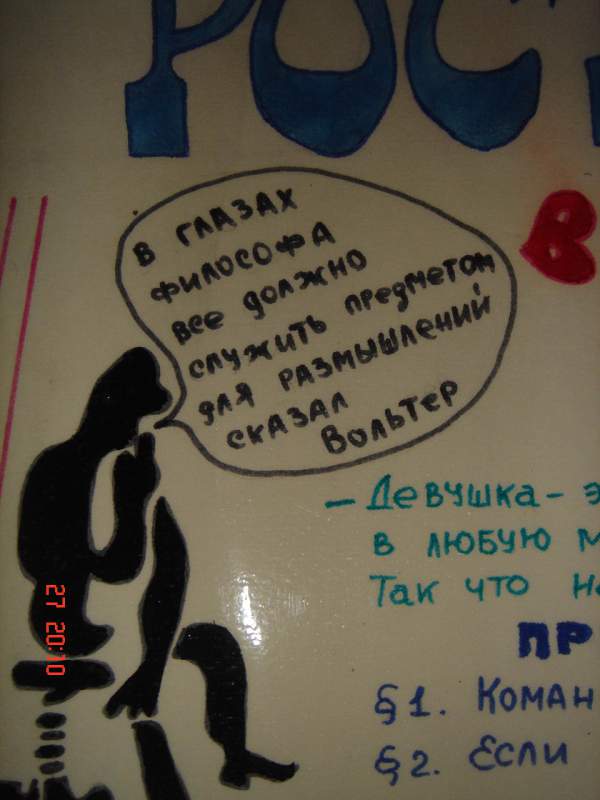 РОСТ
В
В ГЛАЗАХ
ФИЛОСОФА
ВСЕ ДОЛЖНО
СЛУЖИТЬ ПРЕДМЕТОМ
ДЛЯ РАЗМЫШЛЕНИЙ
СКАЗАЛ
ВОЛЬТЕР
— ДЕВУШКА - Э
В ЛЮБУЮ М
ТАК ЧТО НА
ПР
§1. КОМАН
§2. ЕСЛИ
27 20:10